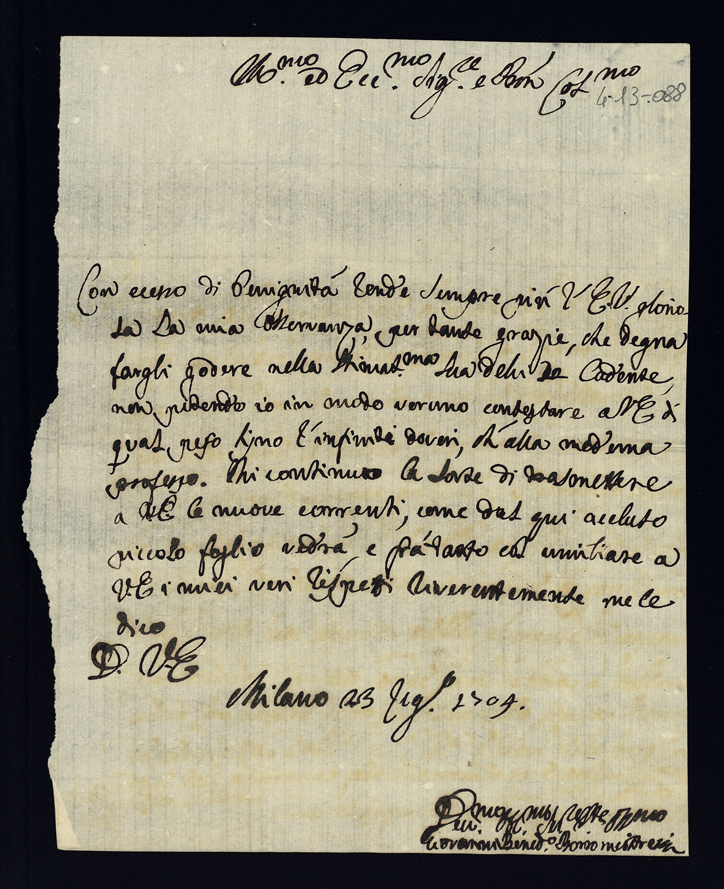 Ill.mo ed Ecc.mo Sig.re e Pron Col.mo
4-13-088
Con ecesso di Benignità rende sempre più l'E.V. glorio-
sa la mia osservanza, per tante grazie, che degna
fargli godere nella Stimat.ma Sua delli Cadente,
non potendo io in modo veruno contestare a V.E. di
qual peso sijno l'infiniti doveri, ch'alla medema
professo. Mi continuo la sorte di trasmettere
a V.E. le nuove correnti, come dal qui accluso
piccolo foglio vedrà, e frà tanto con umiliare a
V.E. i miei veri rispetti riverentemente me le
dico
D. V.E.
Milano 23 1704.
Giovanni Bened.o